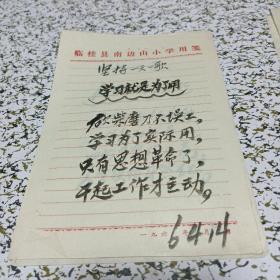 临桂县南边山小学用笺
坚持一天一歌
学习就是为了用
砍柴磨刀不误工,
学习为了实际用,
只有思想革命了,
干起工作才主动。
一九六
64.14